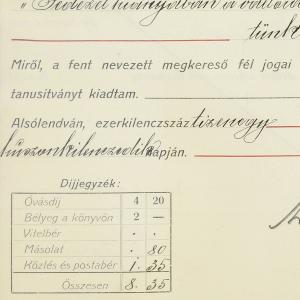 „Fedezet hiányában a
tünk
Miről, a fent nevezett megkereső fél jogai
tanusítványt kiadtam.
Alsólendván, ezerkilenczszáz tizenegy
huszonkilenczedik napján.
Díjjegyzék:
Óvásdíj 4 20
Bélyeg a könyvön 2 —
Vitelbér . .
Másolat . 80
Közlés és postabér 1. 35
Összesen 8. 35